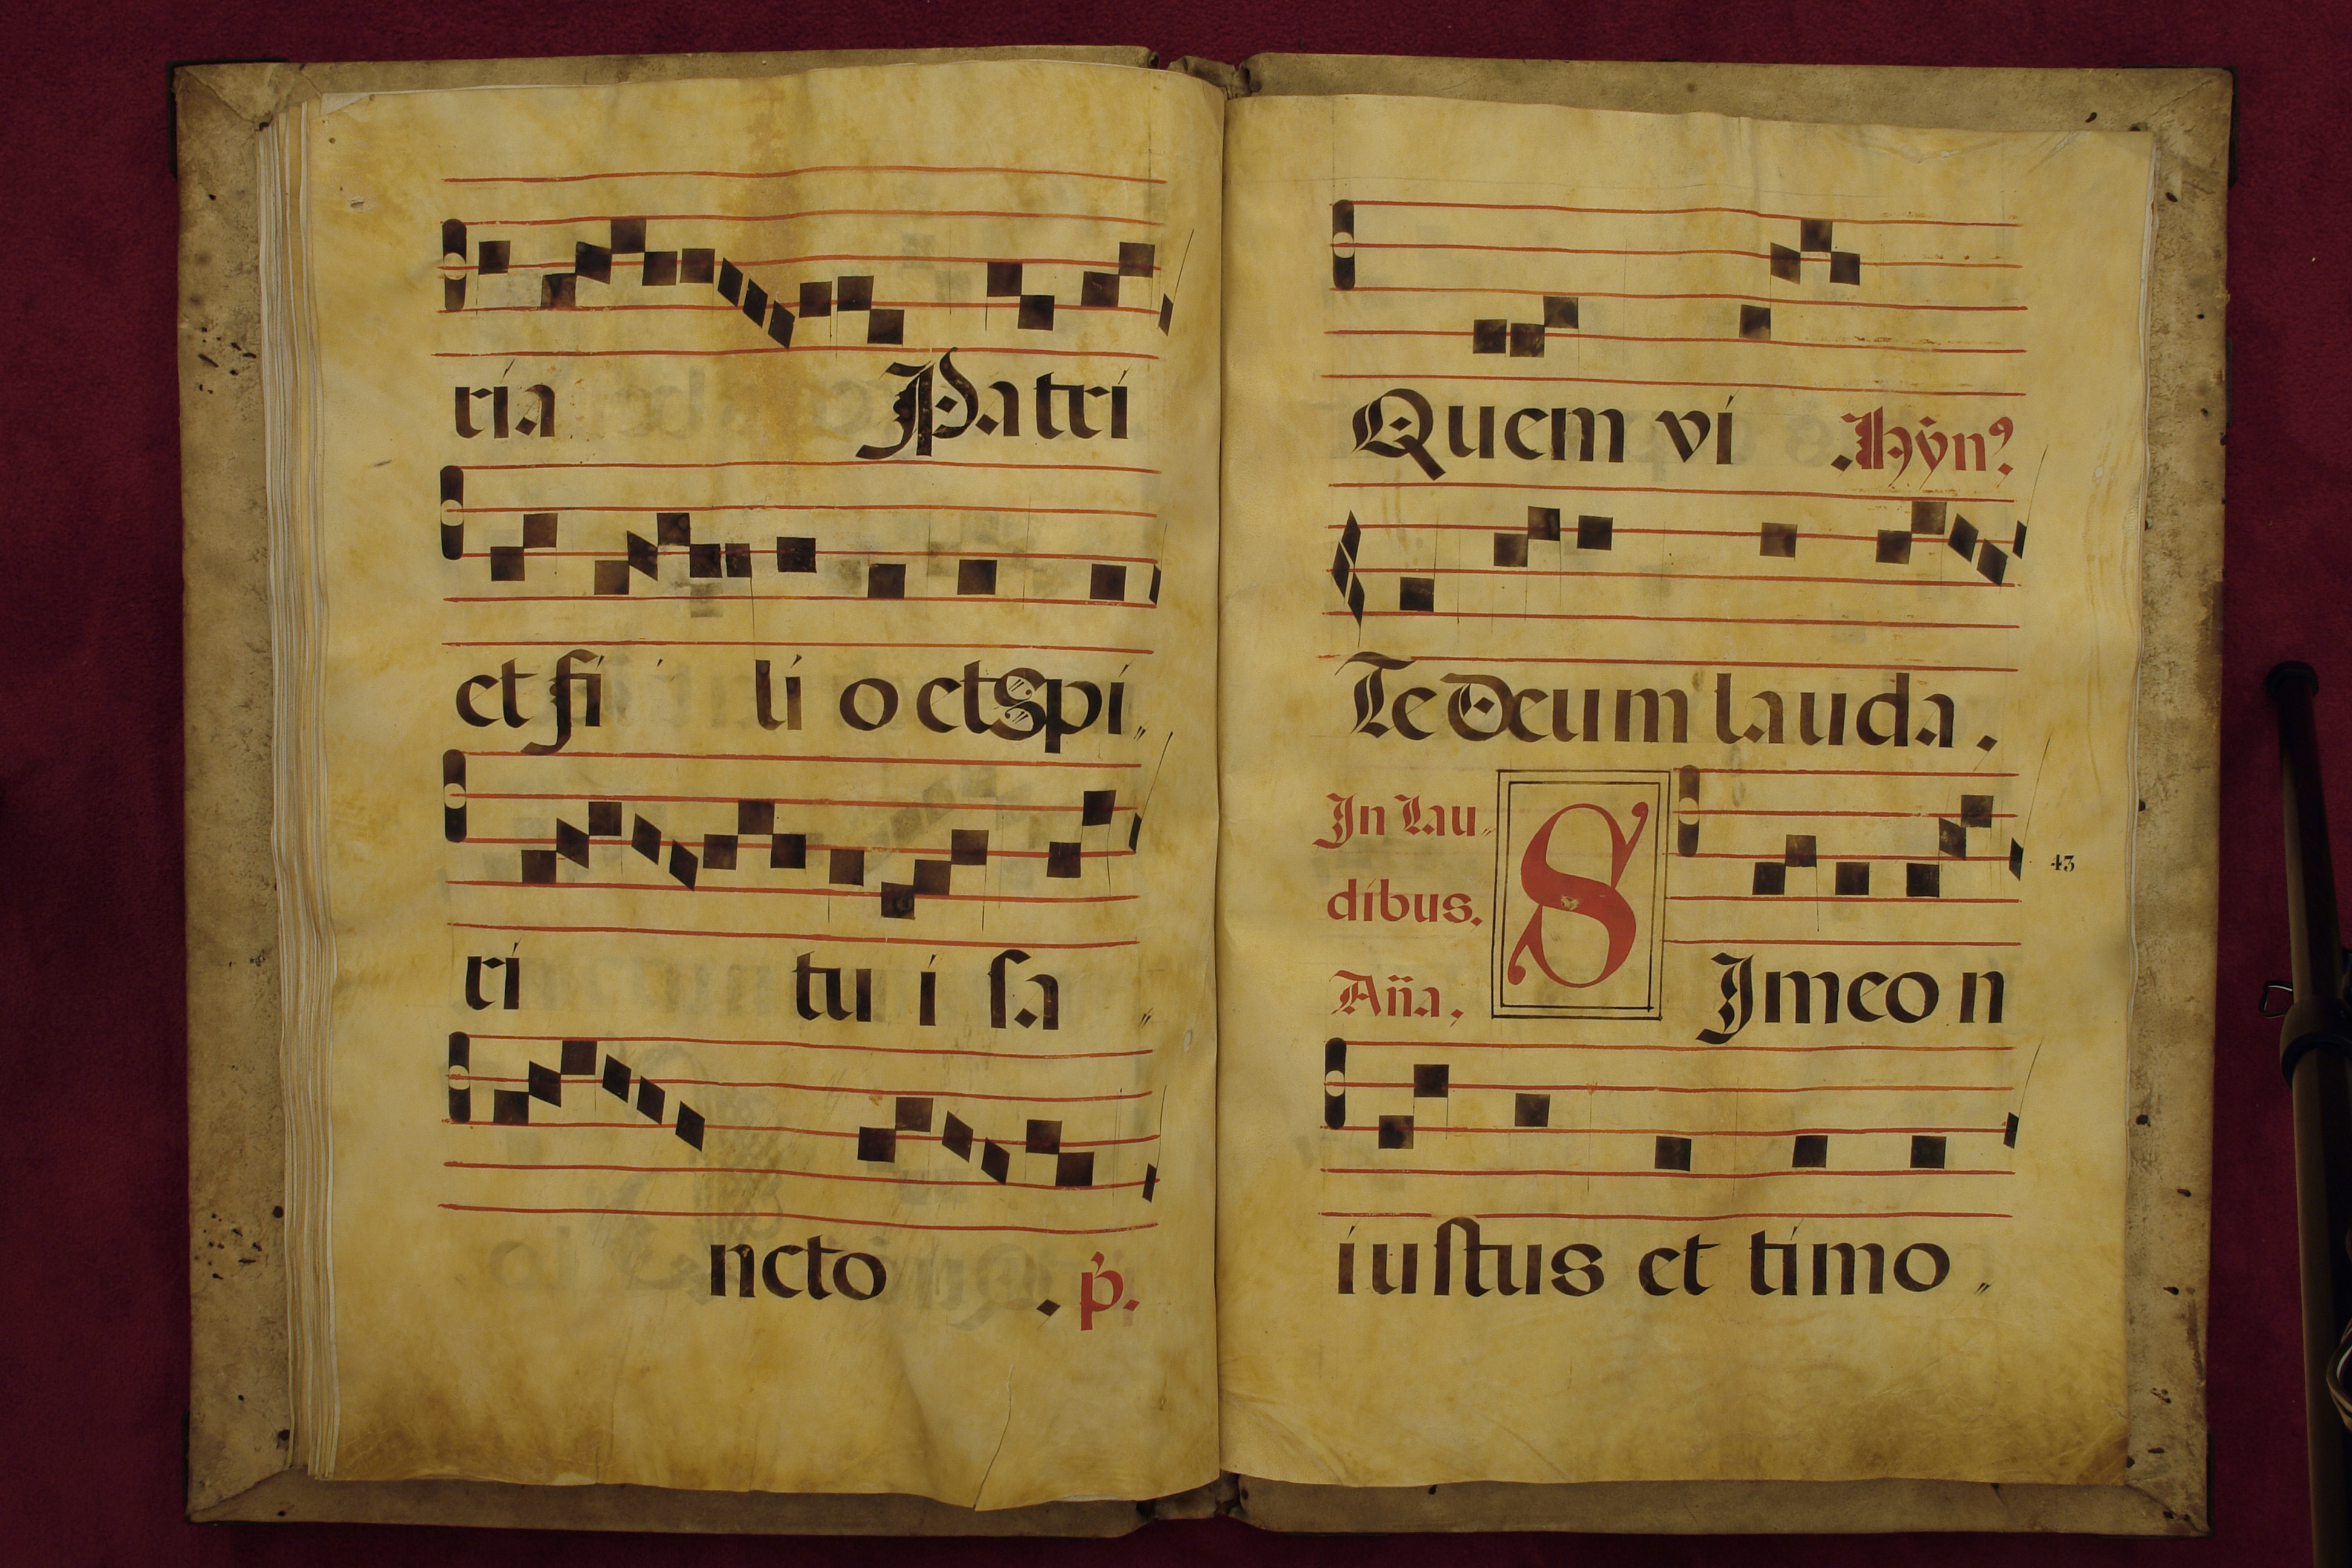 ria Patri
et fi li o et spi„
ri tu i sa „
ncto . p̄.
Quem vi . Hỹn⁹.
Te Deum lauda.
In Lau„
dibus.
Añа.
S Jmeon
43
iustus et timo „